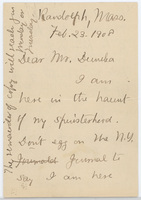 Randolph, Mass.
Feb. 23. 1908
Dear Mr. Duneka
I am
here in the haunt
of my spinsterhood.
Don't egg on the N.Y.
Journal Journal to
say I am here
The remainder of copy will reach you
Monday or
Tuesday.